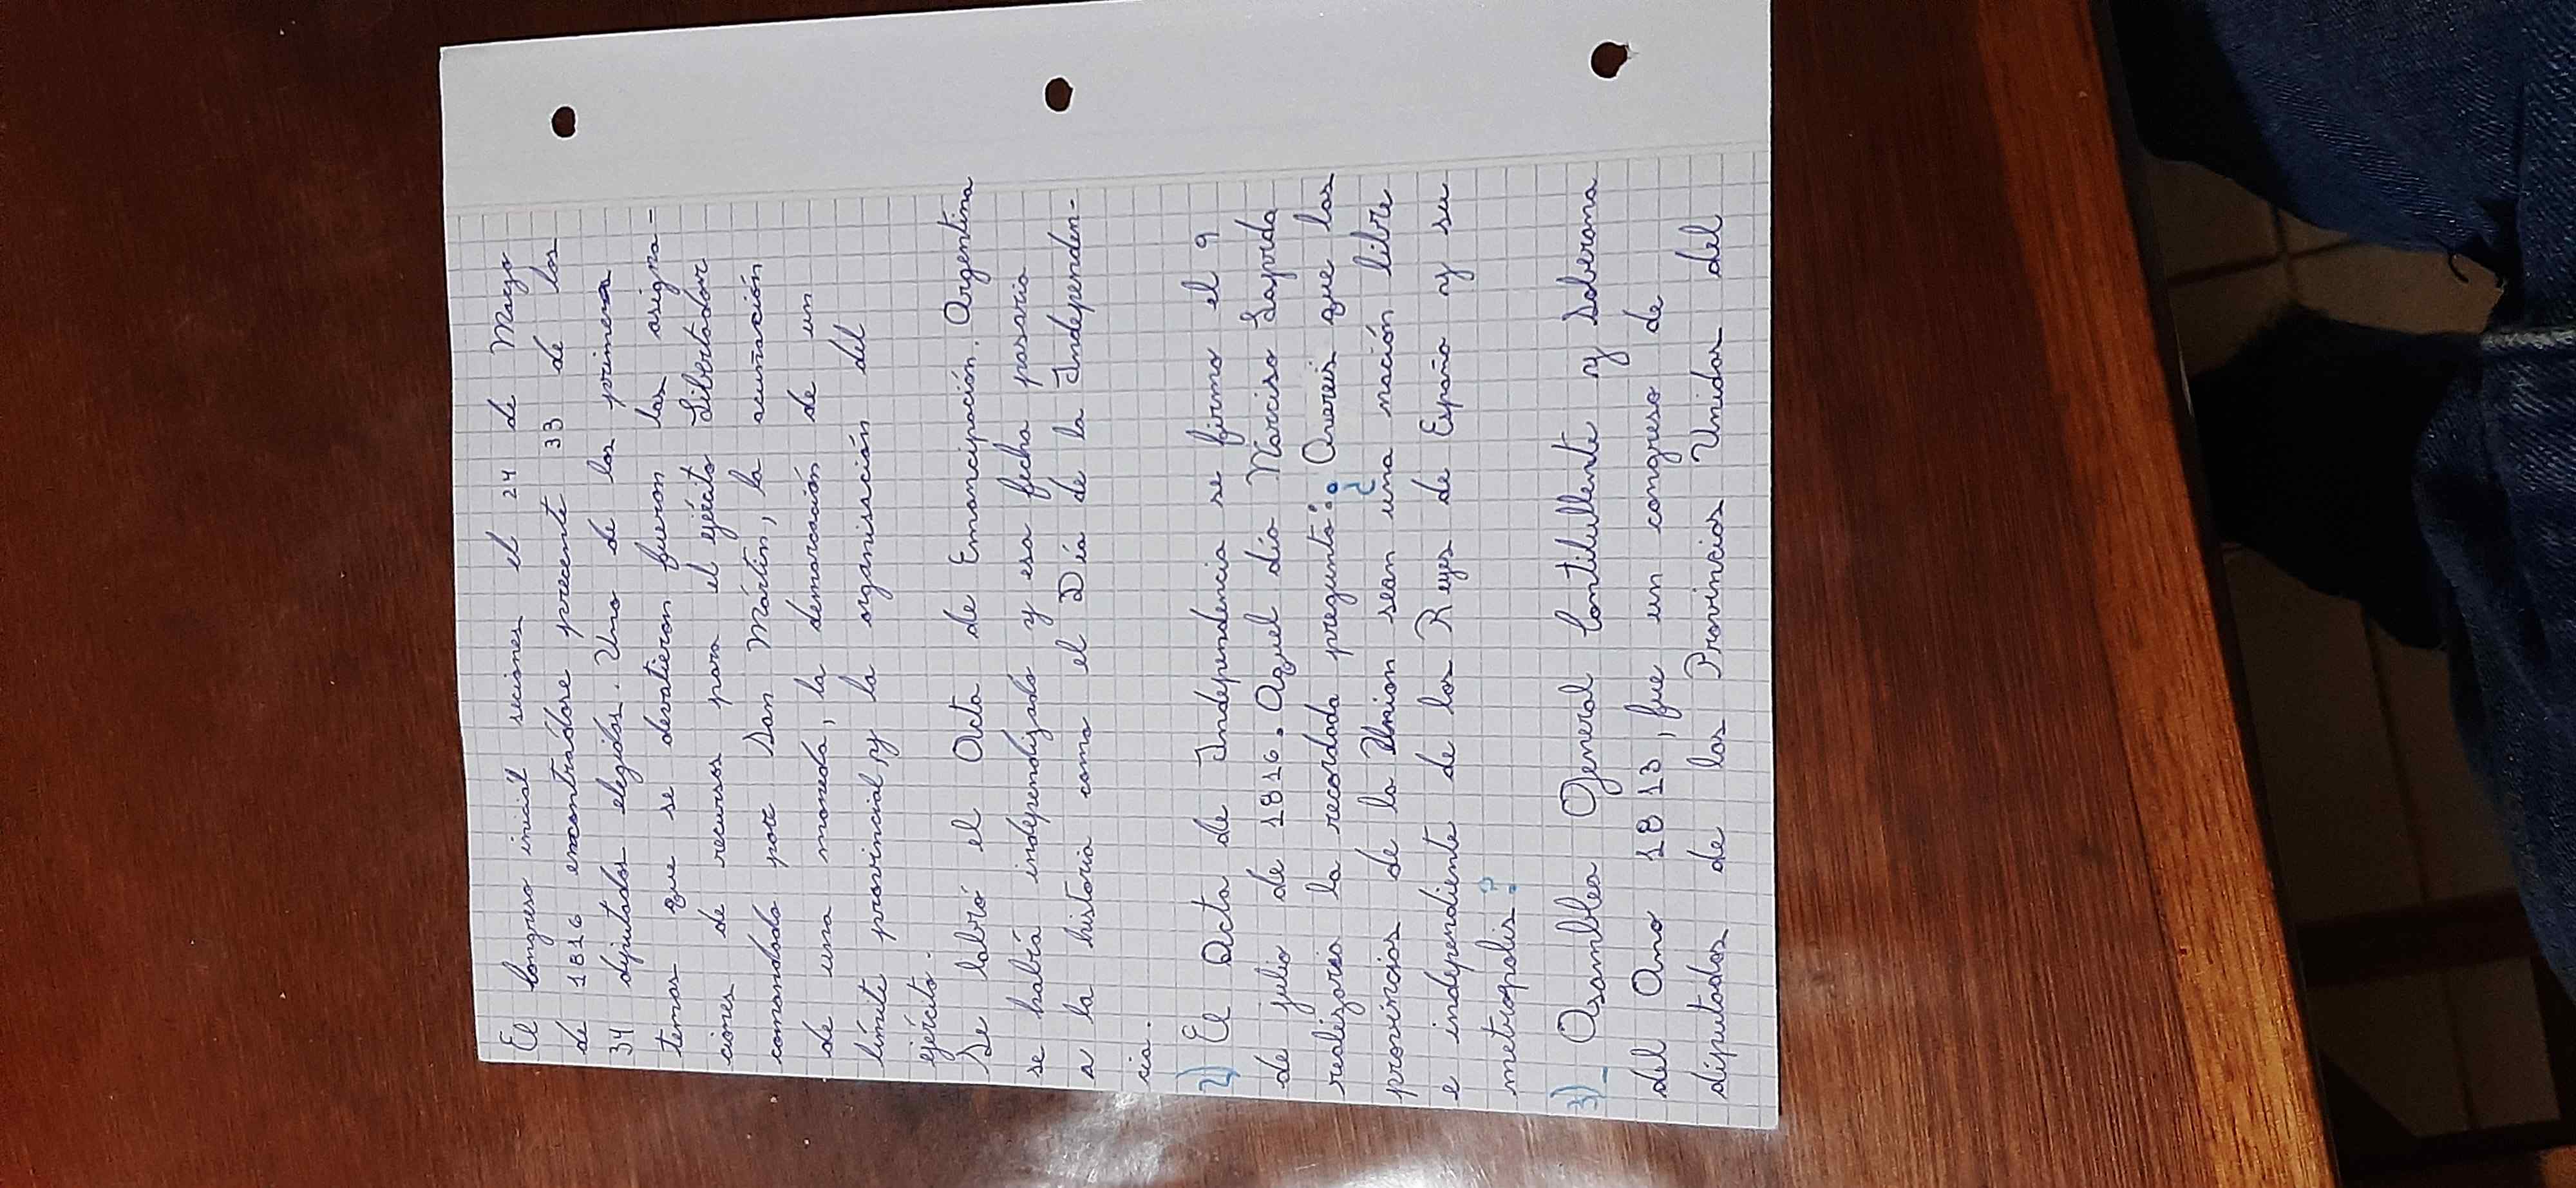 El Congreso inicial seciones el 24 de Marzo
de 1816 encontrádose precente 33 de los
34 diputados elegidos. Uno de los primeros
temas que se devatieron fueron las asigna-
ciones de recursos para el ejército Libertador
comandado por San Mártin, la acuñación
de una moneda, la demarcación de un
límite provincial, y la organisación del
ejército.
Se labró el Acta de Emancipación. Argentina
se habría independizado y esa fecha pasaría
a la historia como el Día de la Independen-
cia.
2) El Acta de Independencia se firmo el 9
de julio de 1816. Aquel día Narciso Laprida
realizaria la recordada pregunta: ¿Quereis que las
provincias de la Union sean una nación libre
e independiente de los Reyes de España y su
metropolis?
3)_ Asamblea General Contitullente y Soberana
del Ano 1813, fue un congreso de
diputados de las Provincias Unidas del